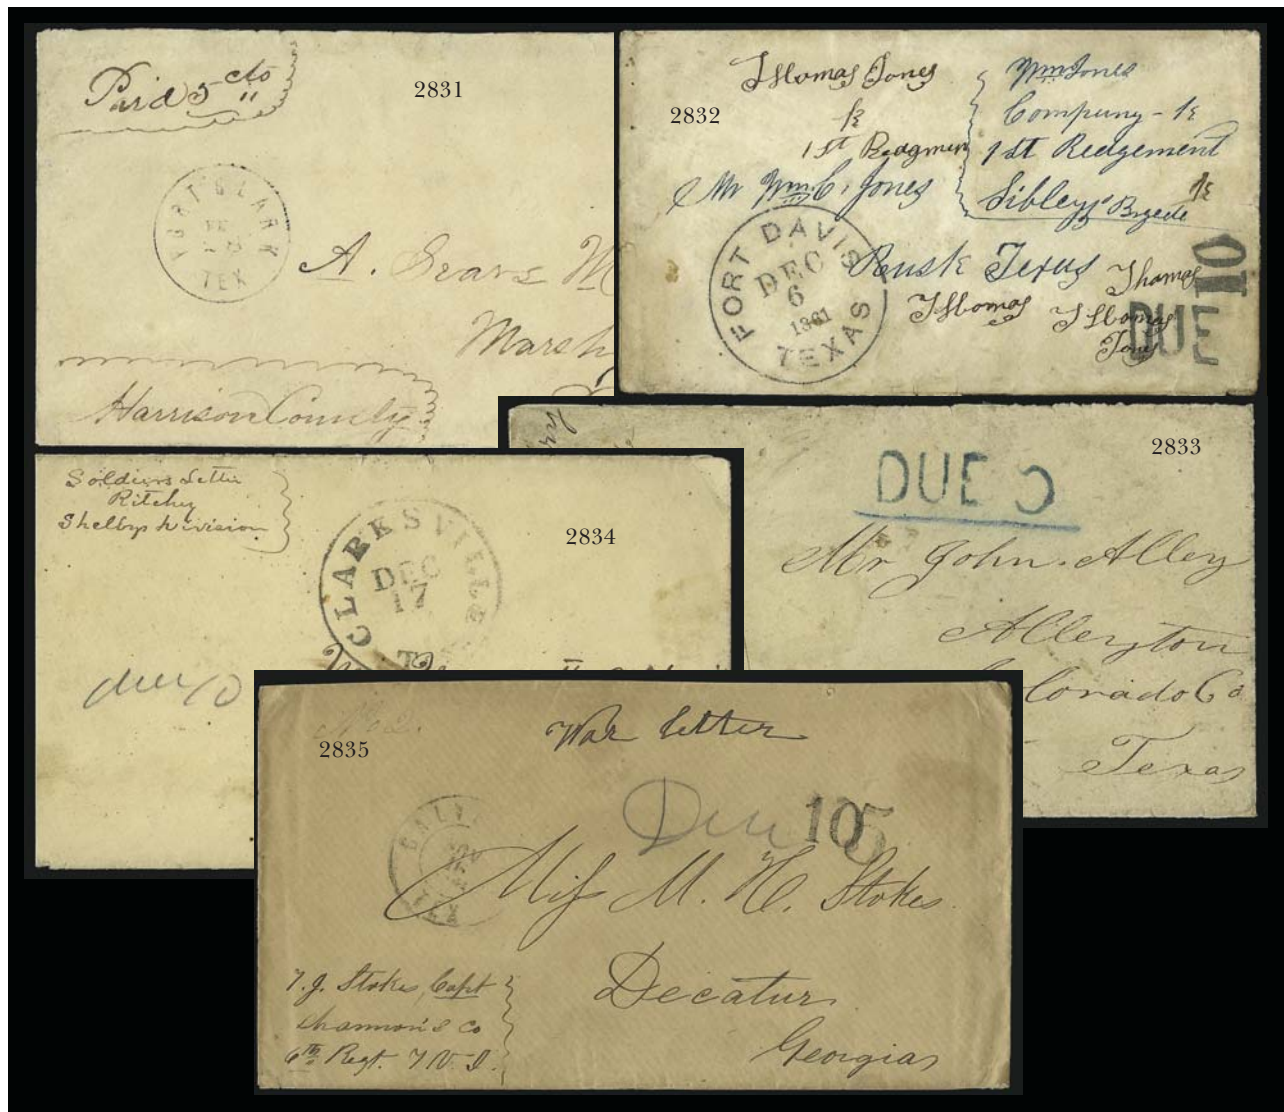 2831
Paid 5 cts
FORT CLARK
TEX
A. Sears
Marsh
Harrison County
2832
Thomas Jones
K
1st Redgmen
Mr Wm. C. Jones
Wm Jones
Company - K
1st Redgement
Sibleys Brgede
K
FORT DAVIS
DEC
6
1861
TEXAS
Rusk Texas
Thomas
Thomas
Thomas
Jones
10
DUE
2833
DUE 5
Mr John. Alley
Alleyton
lorado Co
Texas
2834
Soldiers Letter
Ritchy
Shelbys Division
CLARKSVILLE
DEC
17
due 10
2835
No 2.
War Letter
Due 10 5
GALV
TEX
Miss M. H. Stokes
Decatur
Georgia
T. J. Stokes, Capt
Shannon's Co
6th Regt. T V. I.